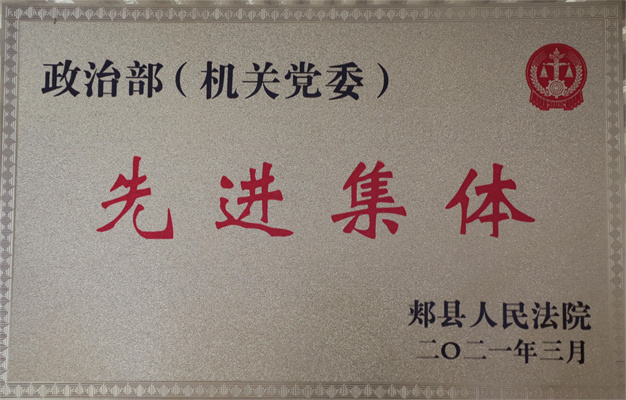 政治部（机关党委）
先进集体
郏县人民法院
二〇二一年三月